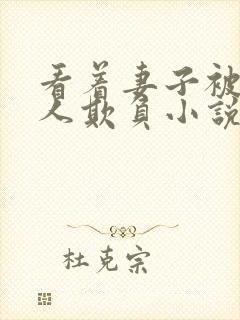 看着妻子被
人欺負小說
杜克宗